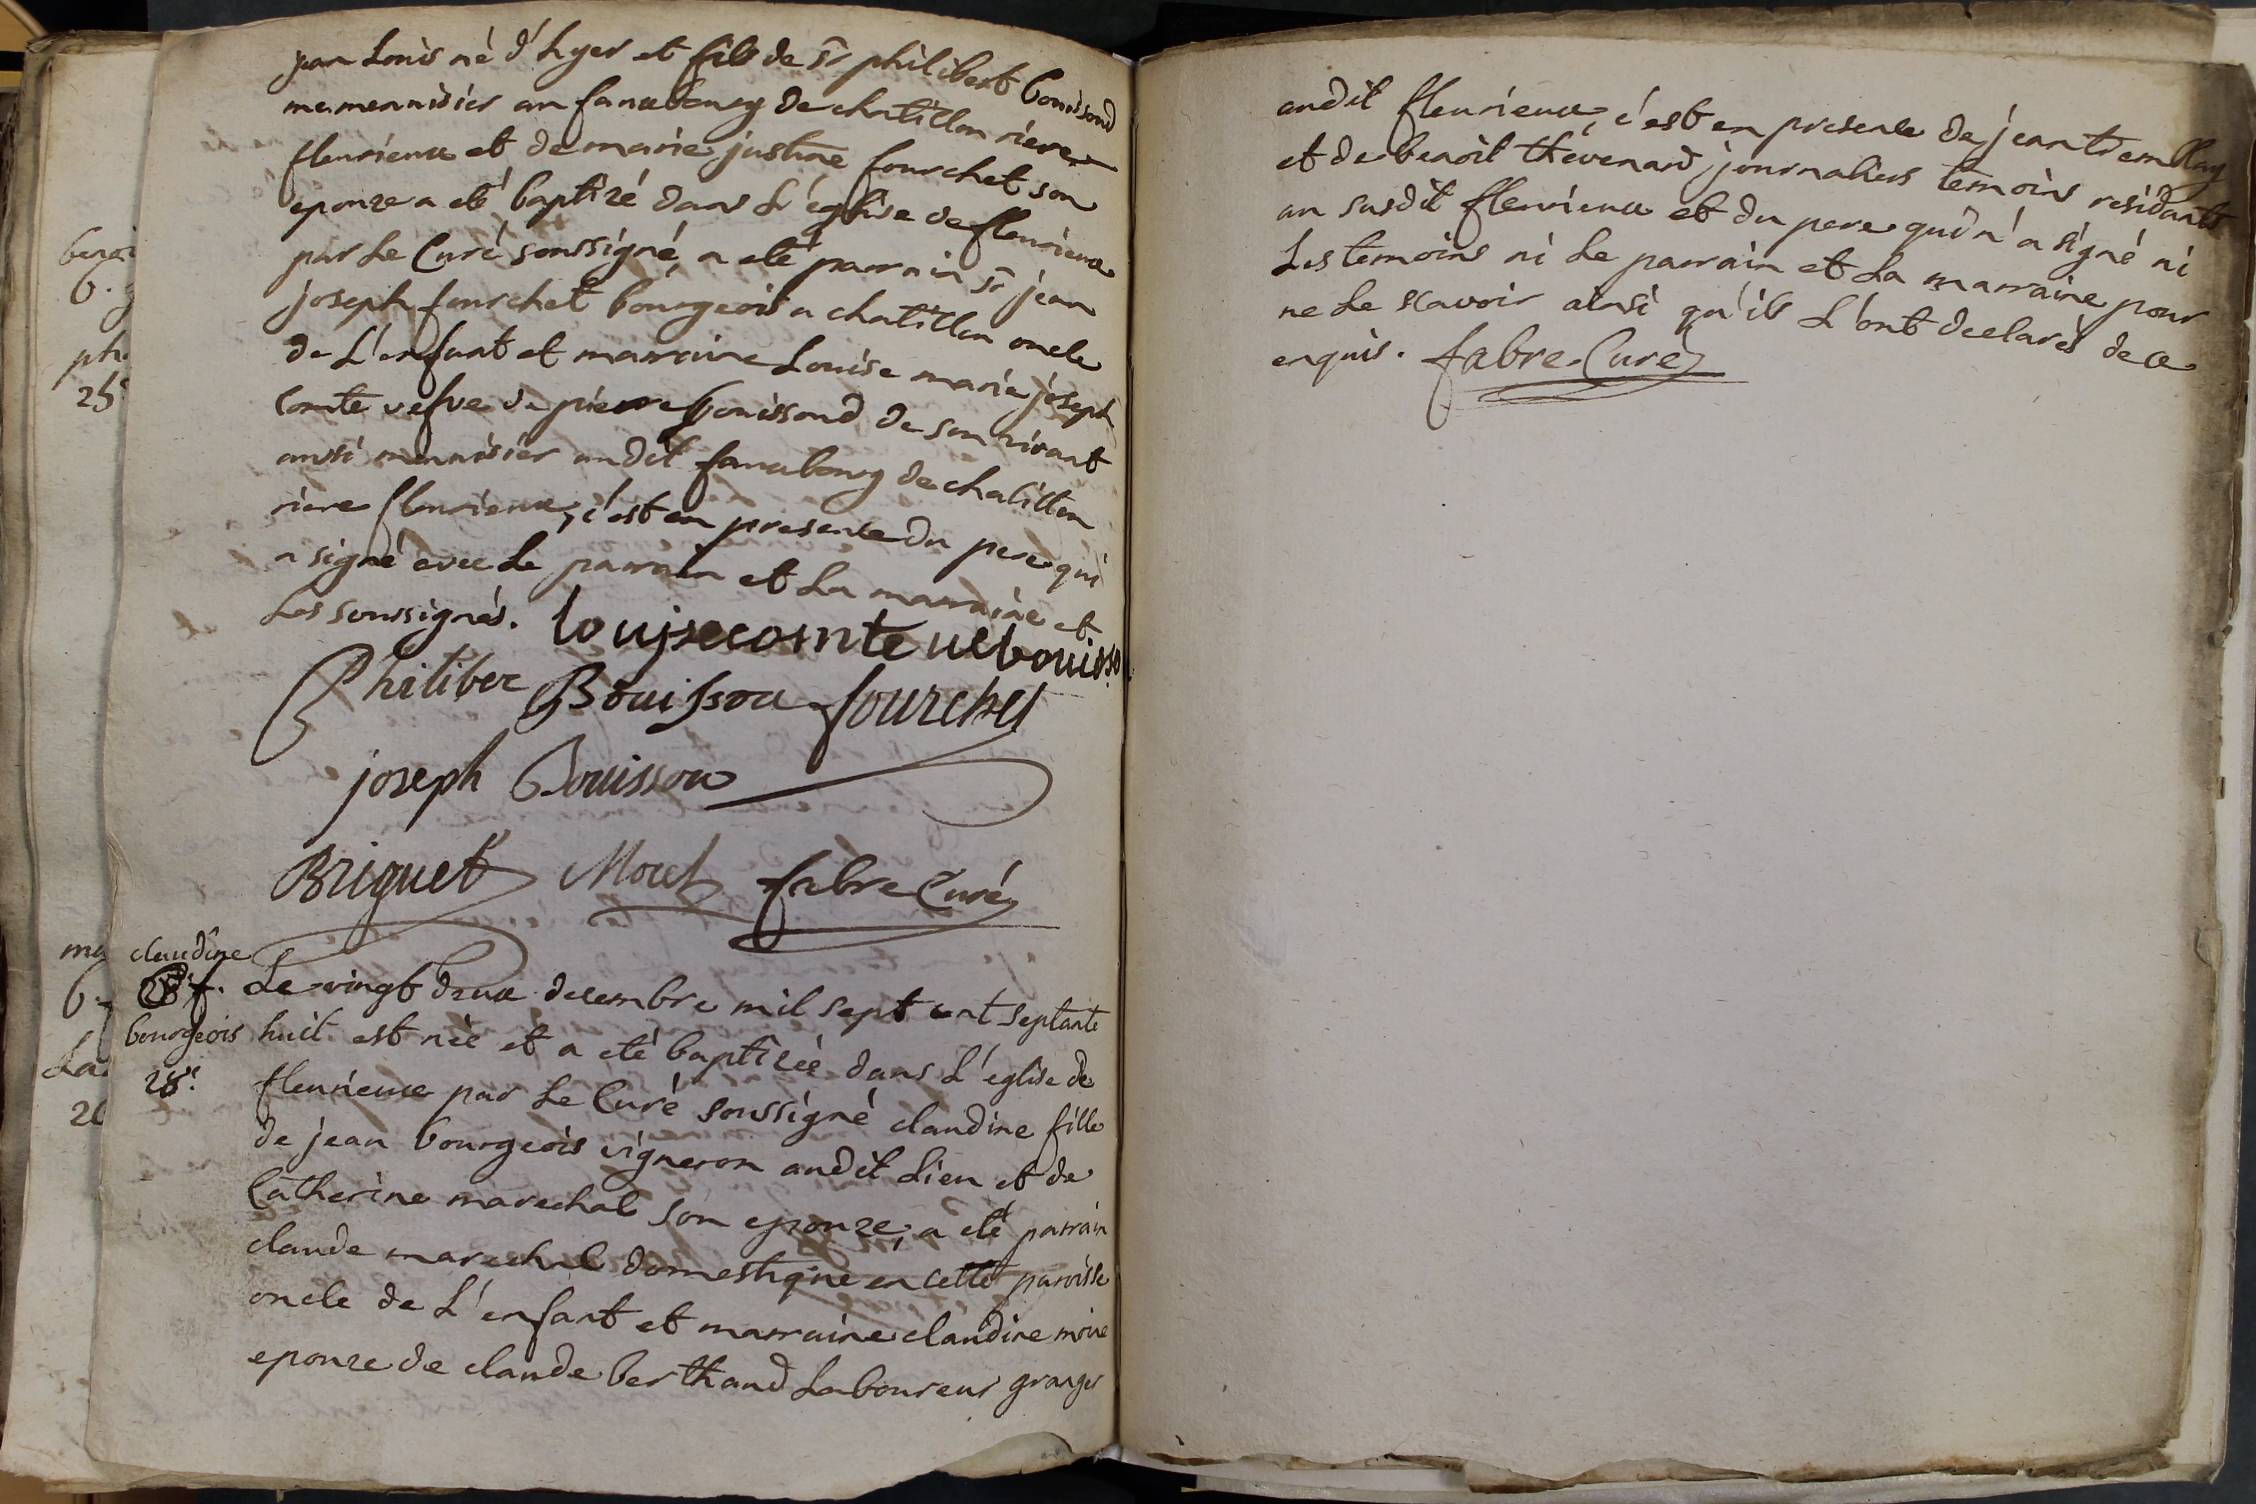 jean Louis né d'hyer et fils de sr philibert bouissoud
me menuisier au fauxbourg de chatillon riere
fleurieux et de marie justine fourchet son
epouze a eté baptizé dans L'église de fleurieux
par Le Curé soussigné, a eté parrain sr jean
joseph fourchet bourgeois a chatillon oncle
de L'enfant et marraine Louise marie joseph
Comte vefve de pierre bouissoud de son vivant
aussi menuisier audit fauxbourg de chatillon
riere fleurieux, c'est en presence du pere qui
a signé avec Le parrain et La marraine et
Les soussignés. loujse comte ve bouisso
Philiber Bouissou fourchet
joseph Bouissou
Briguet Morel fabre Curé
claudine
f.
bourgeois
28e.
Le vingt deux decembre mil sept cent septante
huit est née et a eté baptizée dans L'eglise de
fleurieux par Le Curé soussigné claudine fille
de jean bourgeois vigneron audit Lieu et de
Catherine marechal son epouze; a eté parrain
claude marechal domestique en cette paroisse
oncle de L'enfant et marraine claudine moine
epouze de claude berthaud Laboureur granger
audit fleurieux, c'est en presence de jean tremblay
et de benoit thevenard journaliers temoins residants
au susdit fleurieux et du pere qui n'a signé ni
Les temoins ni Le parrain et La marraine pour
ne Le scavoir ainsi qu'ils L'ont declarés de ce
enquis. fabre Curé